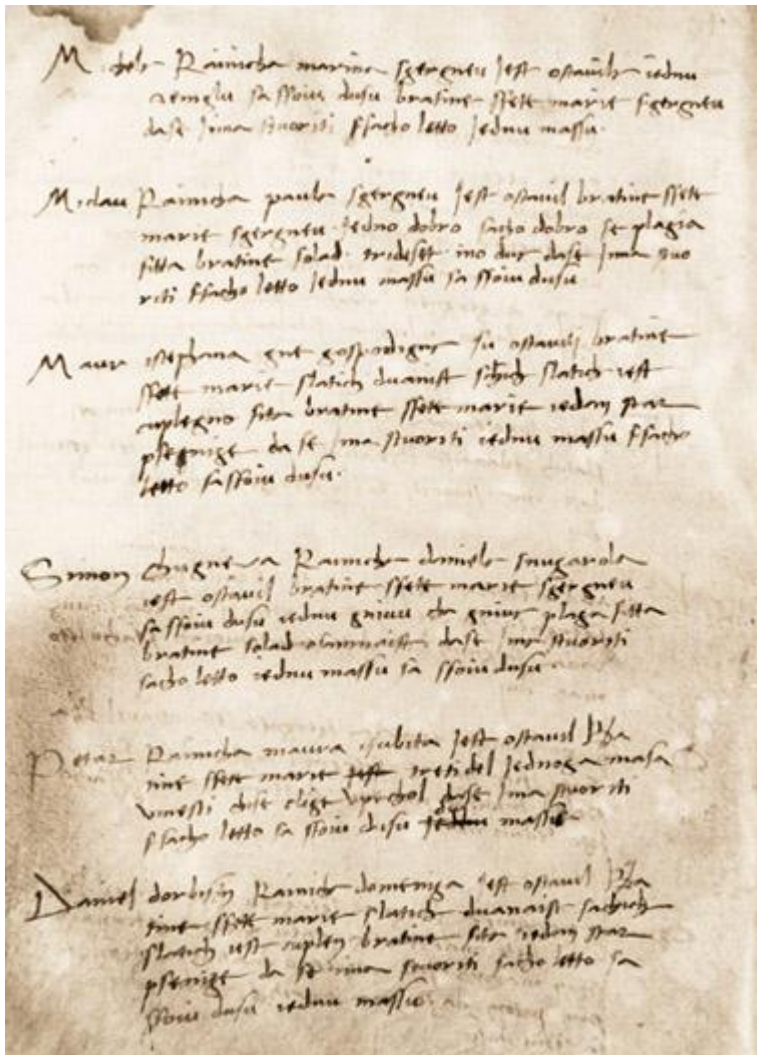 Michel Rainicha marina sgergneu Jest ostauil iednu
zemglu sa ssoiu dusu bratine ssete marie sgergneu
dase Jima stuoriti ssacho letto Jednu massu.
Miclau Rainicha paula sgergneu Jest ostauil bratine ssete
marie sgergneu Jedno dobro sacho dobro se plagia
sitta bratine solad trideset ino duc dase Jma stuo
riti ssacho letto Jednu massu sa ssoiu dusu
Maura istephana gne gospodigne su ostauili bratine
ssete marie slatich duanist slatich iest
cuplegno sita bratine ssete marie iedan star
psegnige da se Jma stuoriti iednu massu ssacho
letto sa ssoiu dusu.
Simon Rainicha daniela
iest ostauil bratine ssete marie sgergneu
sa ssoiu dusu iednu gniuu cha gniue plaga sitta
bratine solad dase Jma stuoriti
sacho letto iednu massu sa ssoiu dusu
Petar Rainicha maura Jest ostauil bra
tine ssete marie treti del Jednoga masa
umesti dase Jma stuoriti
ssacho letto sa ssoiu dusu massu
Daniel Rainich domeniga iest ostauil bra
tine ssete marie slatich duanaist sachich
slatich iest cuplen bratine sita iedan star
psenige da se ima stuoriti sacho letto sa
ssoiu dusu iednu massu